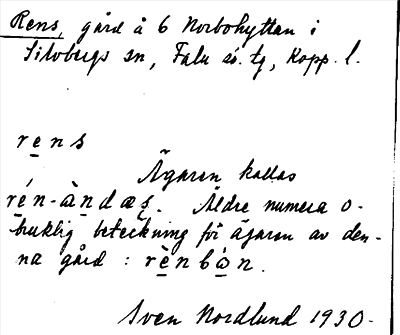 Rens, gård å 6 Norbohyttan i
Silvbergs sn, Falu sö. tg, Kopp. l.
rens
Ägaren kallas
rén-àndas. Äldre numera o-
bruklig beteckning för ägaren av den-
na gård : rènbòn.
Sven Nordlund 1930.